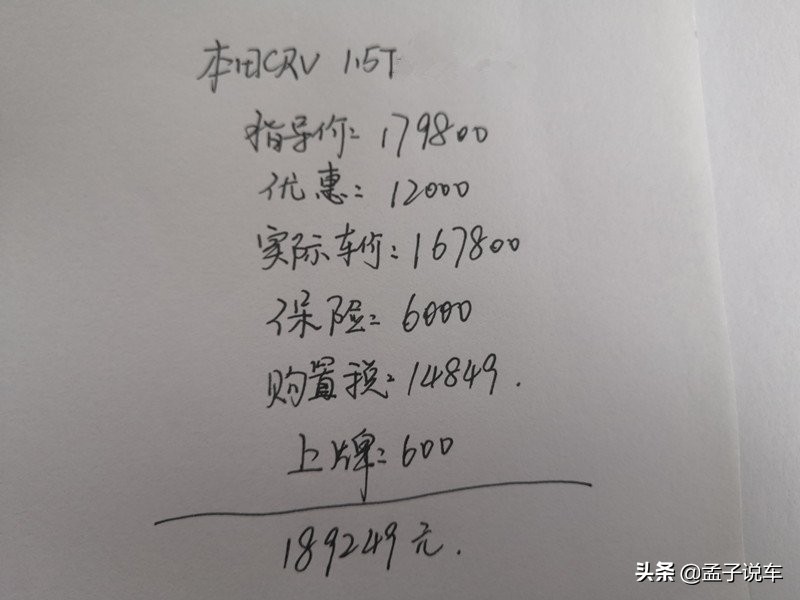 本田CRV 1.5T
指导价: 179800
优惠: 12000
实际车价: 167800
保险: 6000
购置税: 14849.
上牌: 600
189249元.
头条 @孟子说车